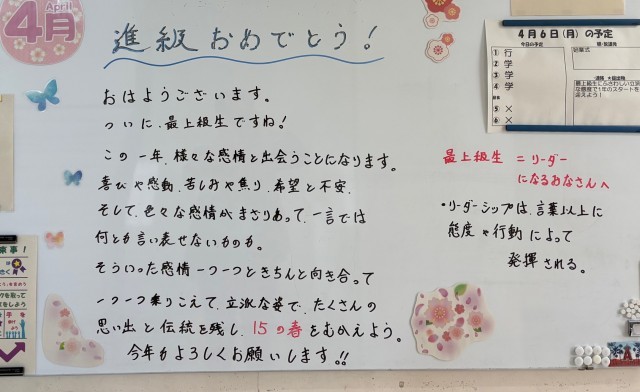 April
4月
進級おめでとう!
おはようございます。
ついに、最上級生ですね!
この一年、様々な感情と出会うことになります。
喜びや感動、苦しみや焦り、希望と不安、
そして、色々な感情がまざりあって、一言では
何とも言い表せないものも。
そういった感情一つ一つときちんと向き合って
一つ一つ乗りこえて、立派な姿で、たくさんの
思い出と伝統を残し、15の春をむかえよう。
今年もよろしくお願いします。!!
最上級生=リーダー
になるみなさんへ
・リーダーシップは、言葉以上に
態度や行動によって
発揮される。
4月6日(月)の予定
今日の予定
① 行
② 学
③ 学
④ 学
⑤ ×
⑥ ×